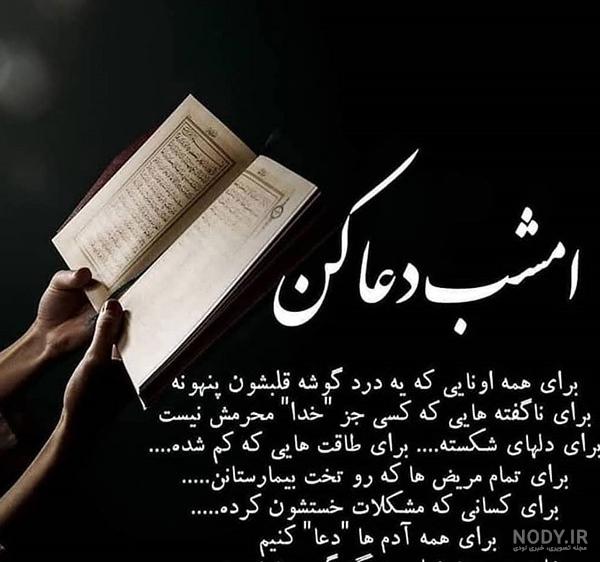 امشب دعا کن
برای همه اونایی که یه درد گوشه قلبشون پنهونه
برای ناگفته هایی که کسی جز "خدا" محرمش نیست
برای دلهای شکسته.... برای طاقت هایی که کم شده....
برای تمام مریض ها که رو تخت بیمارستانن.....
برای کسانی که مشکلات خستشون کرده.....
برای همه آدم ها "دعا" کنیم
NODY.IR
مجله تصویری، خبری نودی